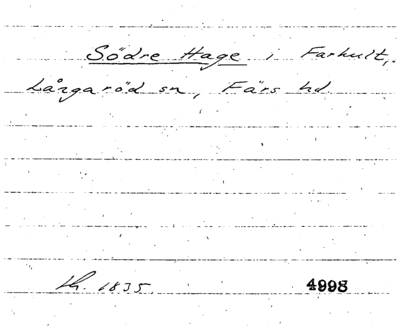 Södre Hage i Farhult,
Långaröd sn, Färs hd
lh. 1835. 4998